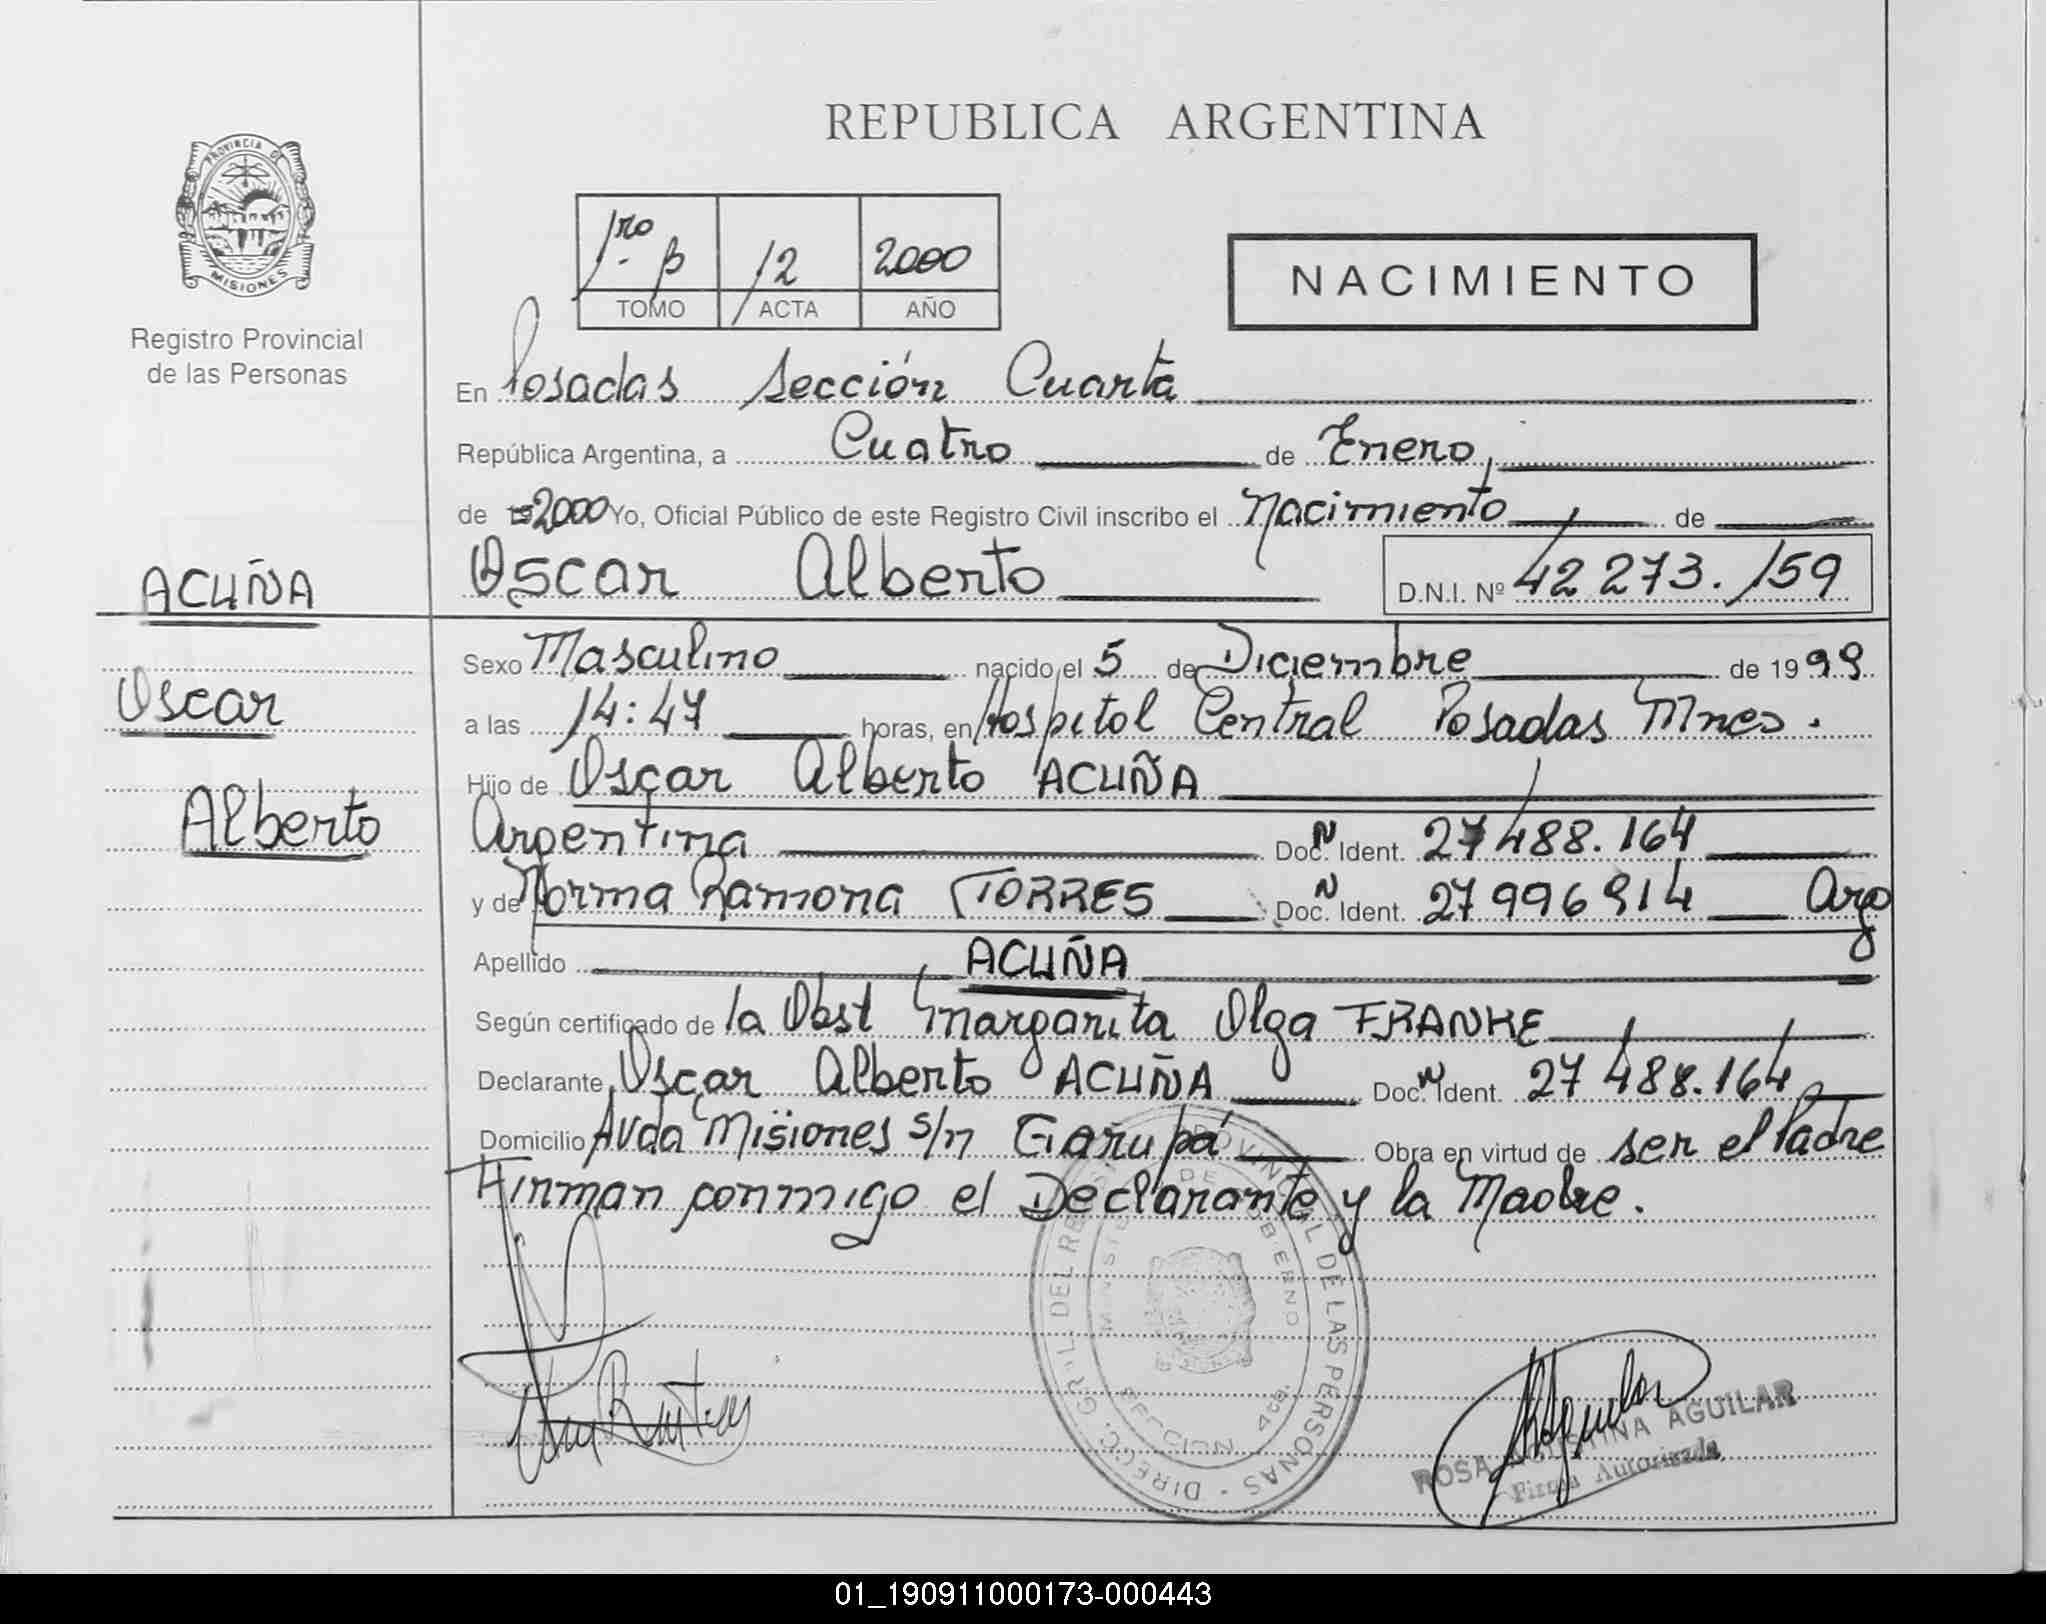 REPUBLICA ARGENTINA
PROVINCIA DE
MISIONES
Registro Provincial
de las Personas
1ro B 12 2000
TOMO ACTA AÑO
NACIMIENTO
En Posadas Sección Cuarta
República Argentina, a Cuatro de Enero
de 19 2000 Yo, Oficial Público de este Registro Civil inscribo el Nacimiento de
Oscar Alberto D.N.I. Nº 42 273.159
ACUÑA
Oscar
Alberto
Sexo Masculino nacido el 5 de Diciembre de 1999
a las 14:47 horas, en Hospital Central Posadas Mnes.
Hijo de Oscar Alberto ACUÑA
Argentina Doc. N Ident. 27 488.164
y de Norma Ramona TORRES Doc. N Ident. 27 996 914 Arg
Apellido ACUÑA
Según certificado de la Obst Margarita Olga FRANKE
Declarante Oscar Alberto ACUÑA Doc. N Ident. 27 488.164
Domicilio Avda Misiones s/n Garupá Obra en virtud de ser el Padre
Firman conmigo el Declarante y la Madre.
DIRECC. GRAL. DEL REG. PROVINCIAL DE LAS PERSONAS
MINISTERIO DE GOBIERNO
SECCION 4ta.
ROSA AGUSTINA AGUILAR
Firma Autorizada
01_190911000173-000443